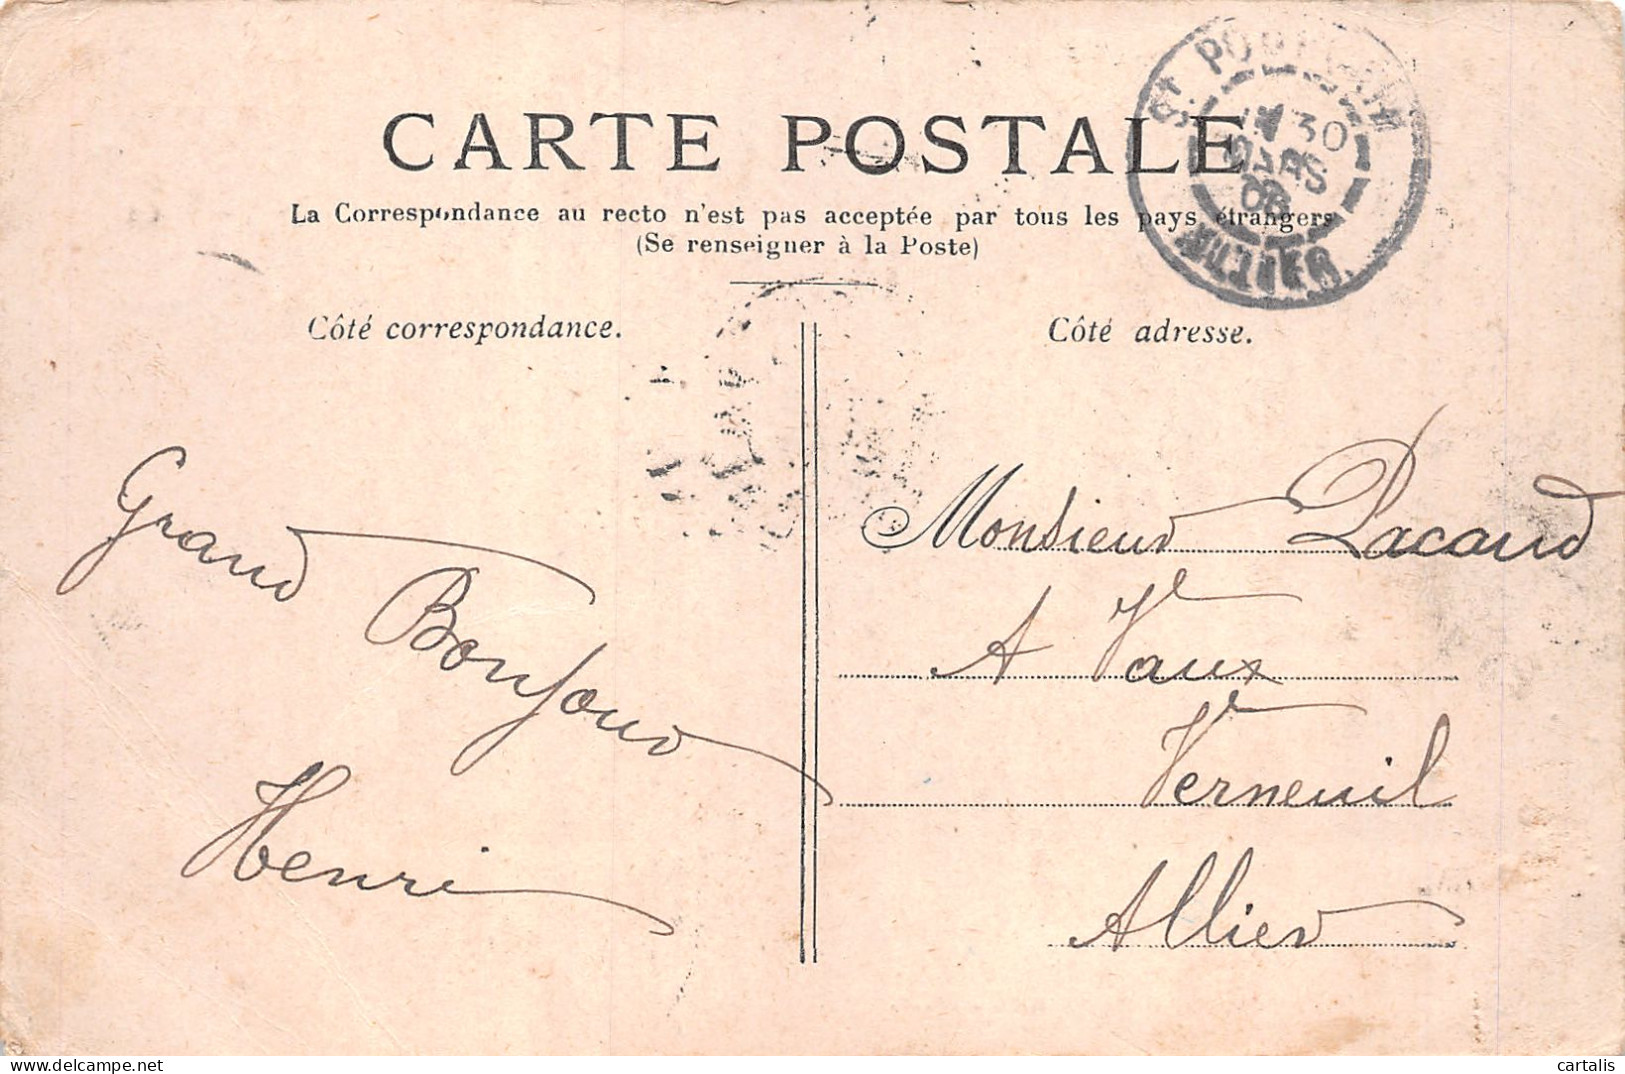 CARTE POSTALE
La Correspondance au recto n'est pas acceptée par tous les pays étrangers
(Se renseigner à la Poste)
Côté correspondance.
Côté adresse.
St POURÇAIN
30
MARS
06
ALLIER
Grand
Bonjour
Henri
Monsieur Lacaud
A Vaux
Verneuil
Allier
cartalis